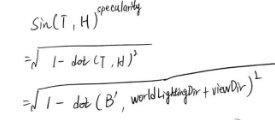 Sin(T, H)^specularity
=√1 - dot (T, H)²
=√1 - dot (B', worldLightingDir + viewDir)²